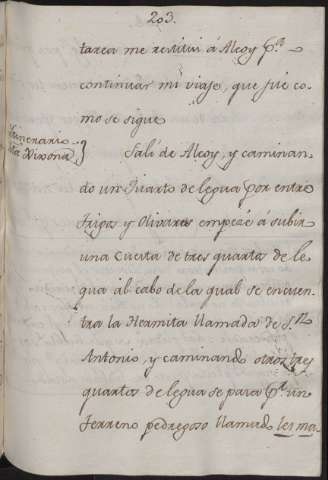 203.
tarea me restitui á Alcoy p.ª
continuar mi viaje, que fue co-
mo se sigue
Itinerario
âta Xixona}
Sali de Alcoy, y caminan-
do un Quarto de legua por entre
Trigos y Olivares empecé á subir
una Cuesta de tres quartos de le-
gua al cabo de la qual se encuen-
tra la Hermita llamada de S.n
Antonio, y caminando otros tres
quartos de legua se pasa p.r un
Terreno pedregoso llamado les ma-